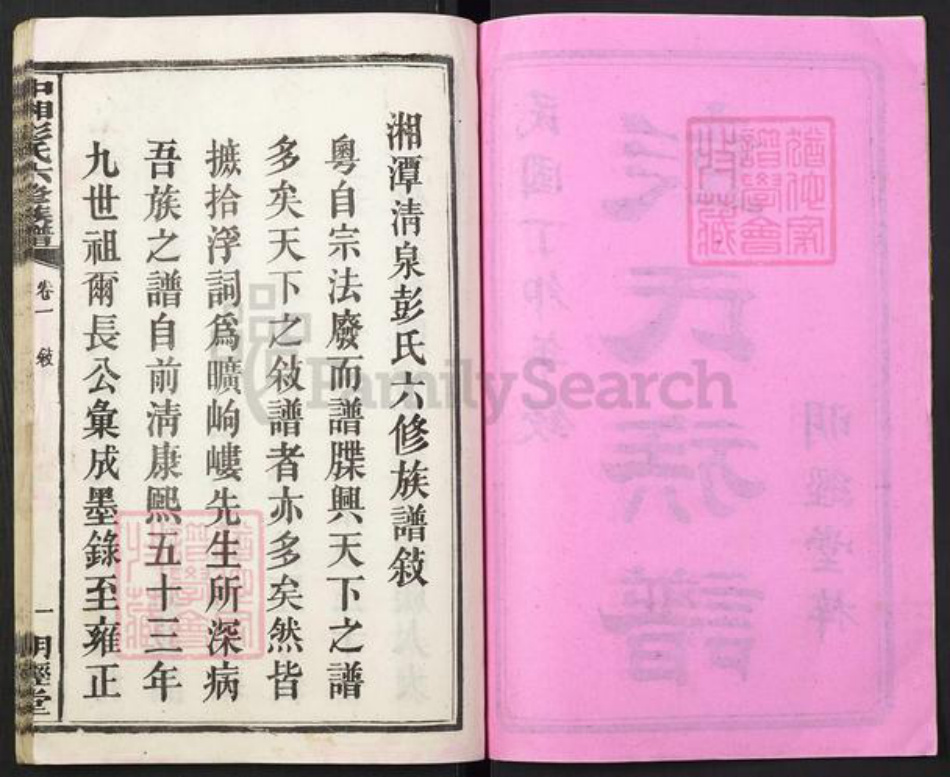 湘潭清泉彭氏六修族譜敍
粵自宗法廢而譜牒興天下之譜
多矣天下之敍譜者亦多矣然皆
摭拾浮詞爲曠岣嶁先生所深病
吾族之譜自前清康熙五十三年
九世祖爾長公彙成墨錄至雍正
中湘彭氏六修族譜
卷一
敍
一
明經堂
民國丁卯
氏族譜
明經堂
FamilySearch